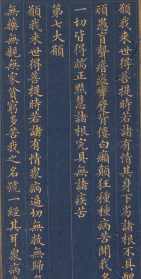 願我來世得菩提時若諸有情其身下劣諸根不具
頑愚盲聾瘖瘂攣躄背僂白癩癲狂種種病苦聞我名
一切皆得端正黠慧諸根完具無諸疾苦
第七大願
願我來世得菩提時若諸有情衆病逼切無救無歸
無藥無親無家貧窮多苦我之名號一經其耳衆病